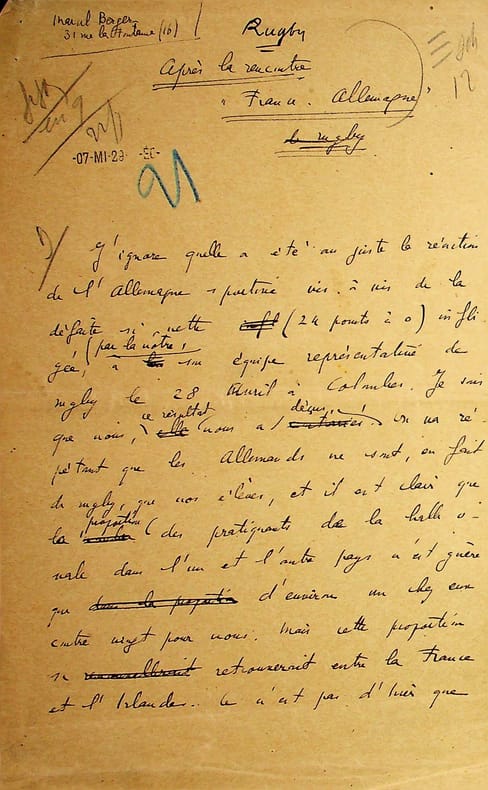 Marcel Berger
31 rue La Fontaine (16)
Rugby
Après la rencontre
"France. Allemagne"
le rugby
-07-MI-29 -
21
12
J'ignore quelle a été au juste la réaction
de l'Allemagne sportive vis à vis de la
défaite si nette (24 points à 0) infli-
gée, (par la nôtre, à son équipe représentative de
rugby le 28 Avril à Colombes. Je sais
que nous, ce résultat elle nous a déçus. On va ré-
pétant que les Allemands ne sont, en fait
de rugby, que nos élèves, et il est clair que
la proportion des pratiquants de la balle o-
vale dans l'un et l'autre pays n'est guère
que dans la proportion d'environ un chez eux
contre vingt pour nous. Mais cette proportion
se retrouverait entre la France
et l'Irlande. Ce n'est pas d'hier que